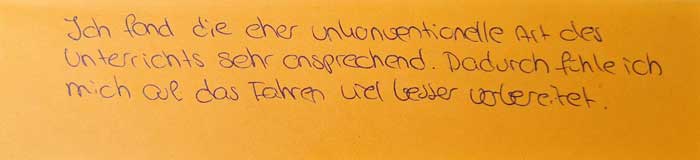 Ich fand die eher unkonventionelle Art des
Unterrichts sehr ansprechend. Dadurch fühle ich
mich auf das Fahren viel besser vorbereitet.